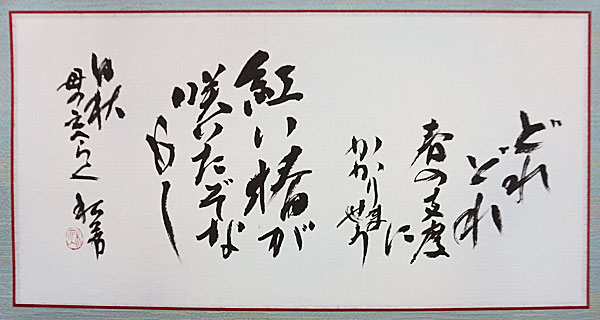 どれ
どれ
春の支度
に
かかりま
せう
紅い椿が
咲いたぞな
もし
白秋
母の云へらく